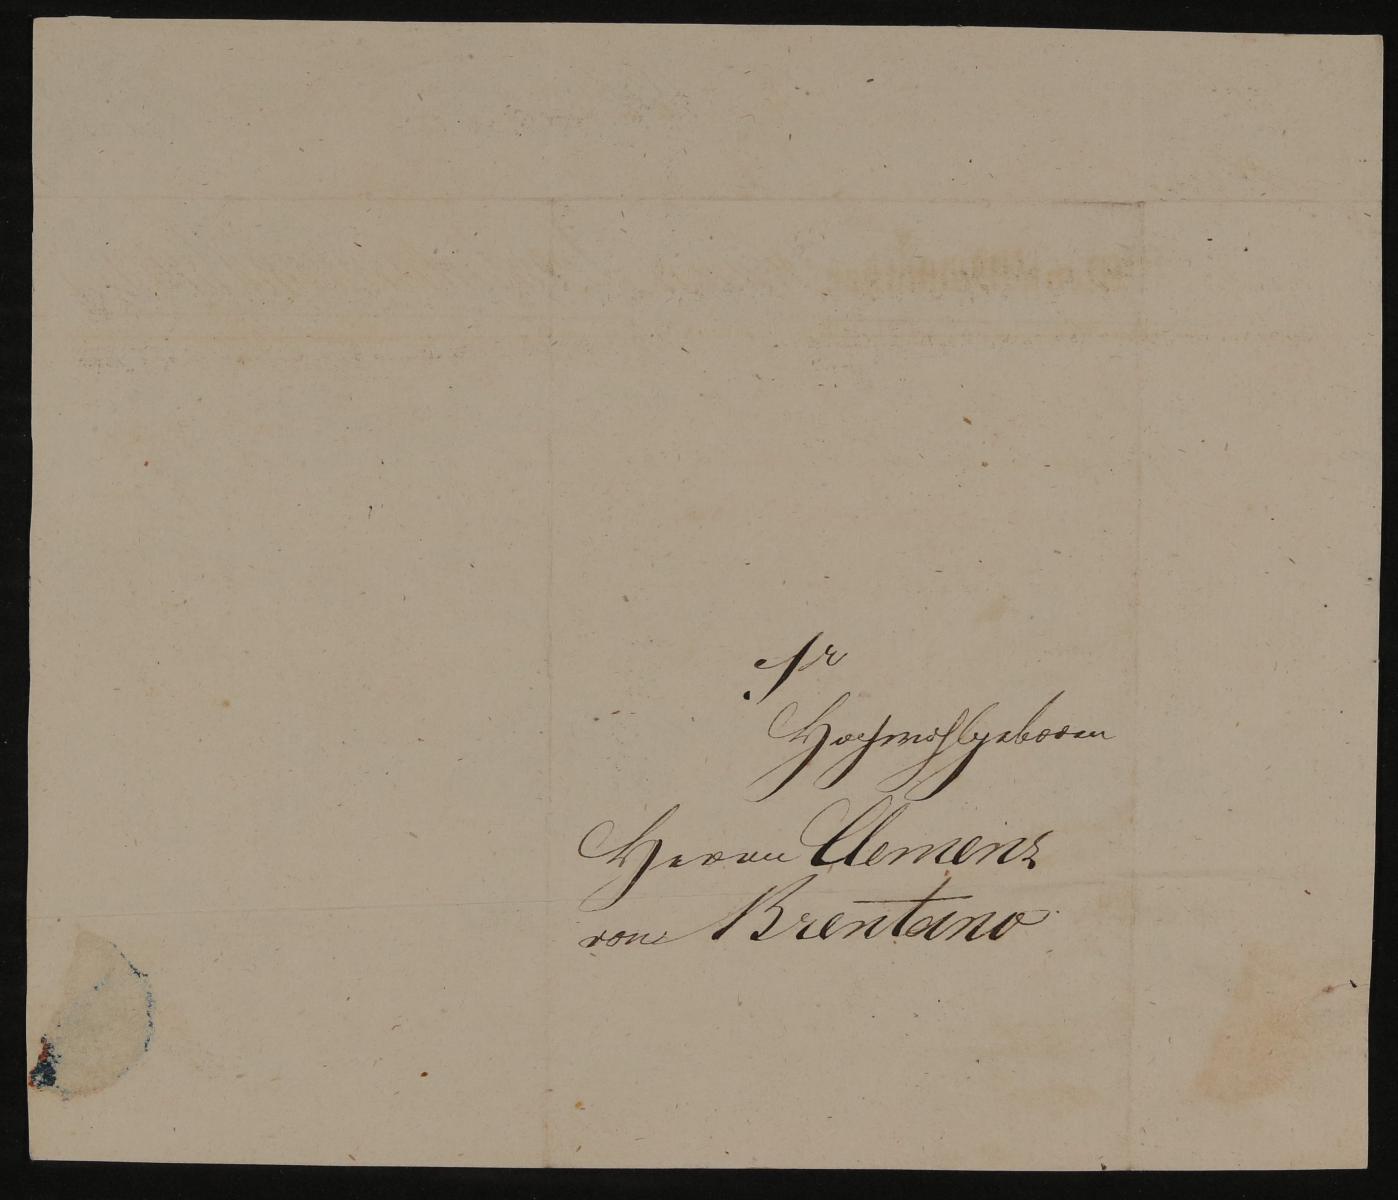 Sr
Hochwohlgeboren
Herrn Clemens
von Brentano